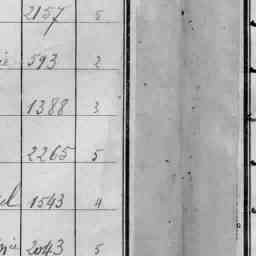 2157 5
593 2
1388 3
2265 5
1543 4
2043 5